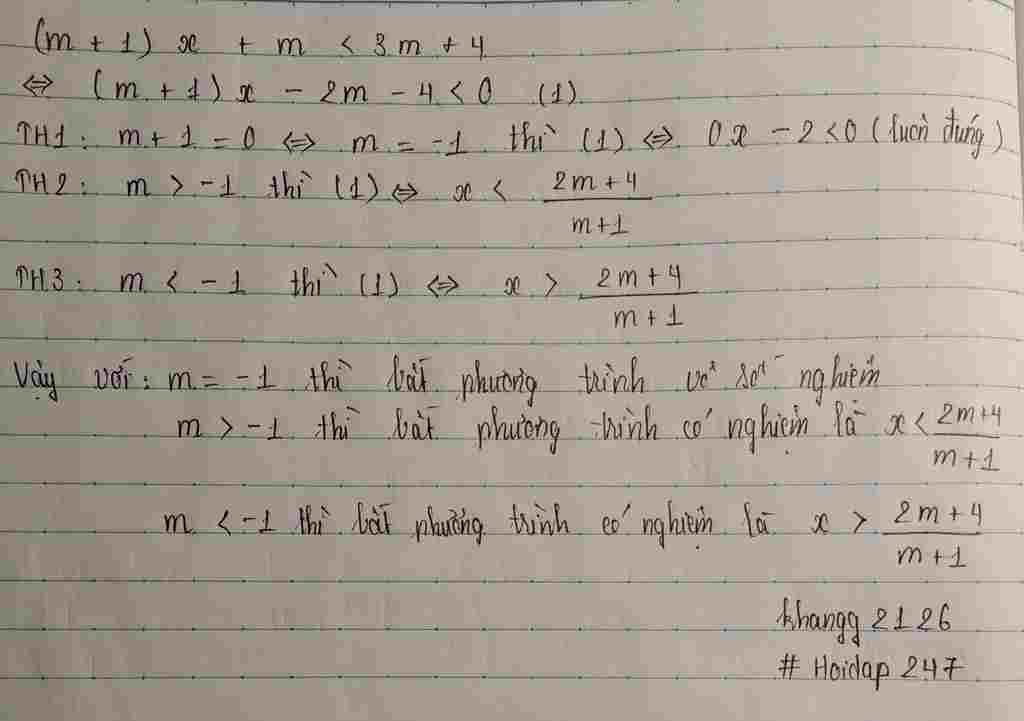 (m + 1) x + m < 3m + 4
⇔ (m + 1) x - 2m - 4 < 0 (1)
TH1: m + 1 = 0 ⇔ m = -1 thì (1) ⇔ 0x - 2 < 0 (luôn đúng)
TH2: m > -1 thì (1) ⇔ x < \frac{2m + 4}{m + 1}
TH3: m < -1 thì (1) ⇔ x > \frac{2m + 4}{m + 1}
Vậy với: m = -1 thì bất phương trình vô số nghiệm
m > -1 thì bất phương trình có nghiệm là x < \frac{2m + 4}{m + 1}
m < -1 thì bất phương trình có nghiệm là x > \frac{2m + 4}{m + 1}
khangg 2126
# Hoidap 247